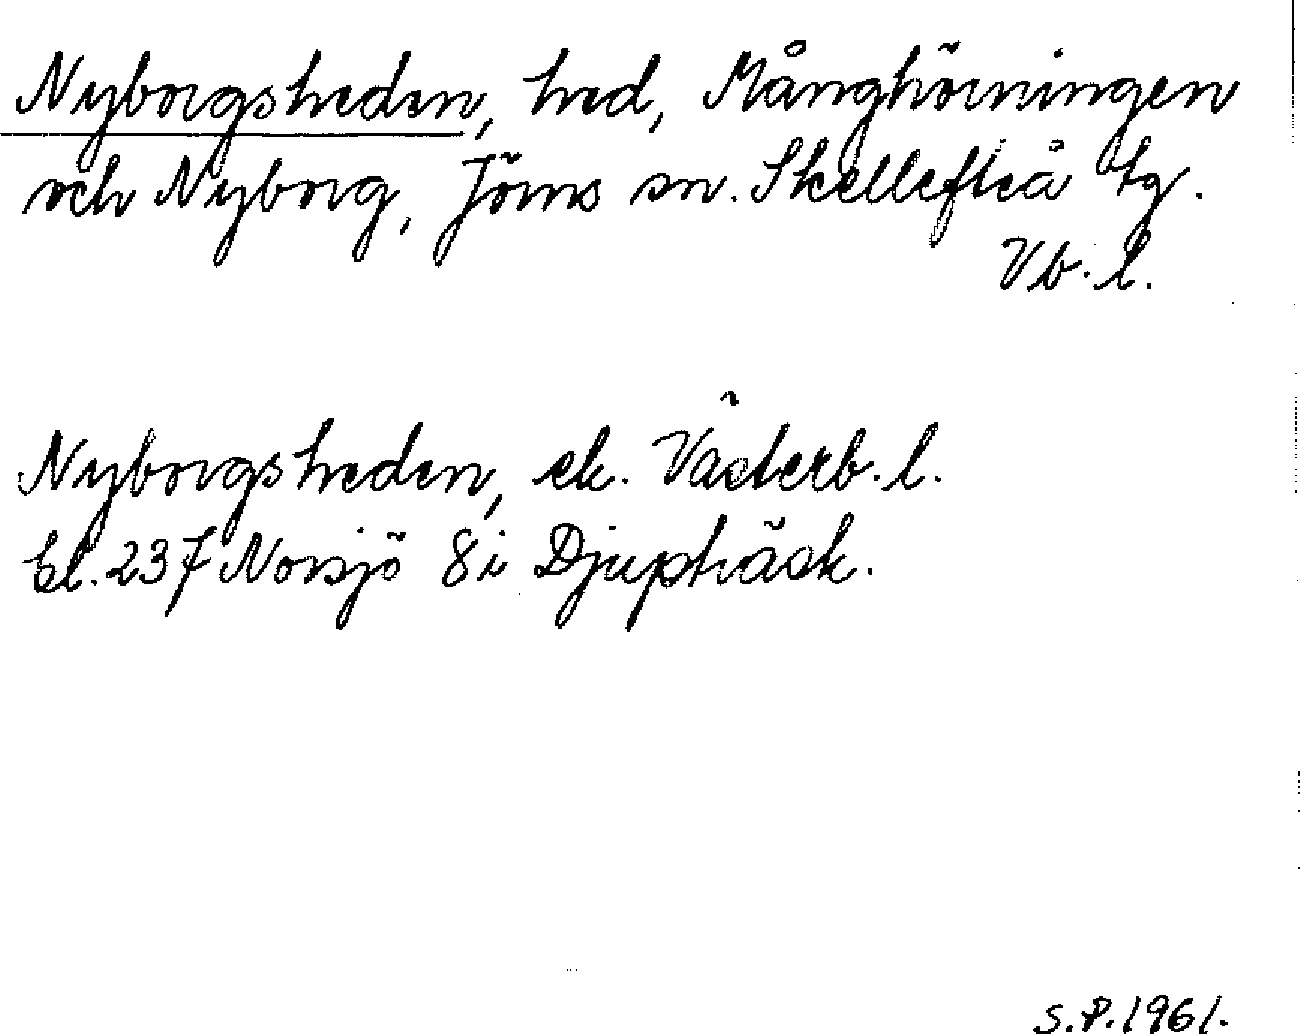 Nyborgsheden, hed, Månghörningen
och Nyborg, Jörns sn. Skellefteå tg.
Vb. l.
Nyborgsheden, ek. Västerb. l.
bl. 237 Norsjö 8i Djupträsk.
S.P. 1961.